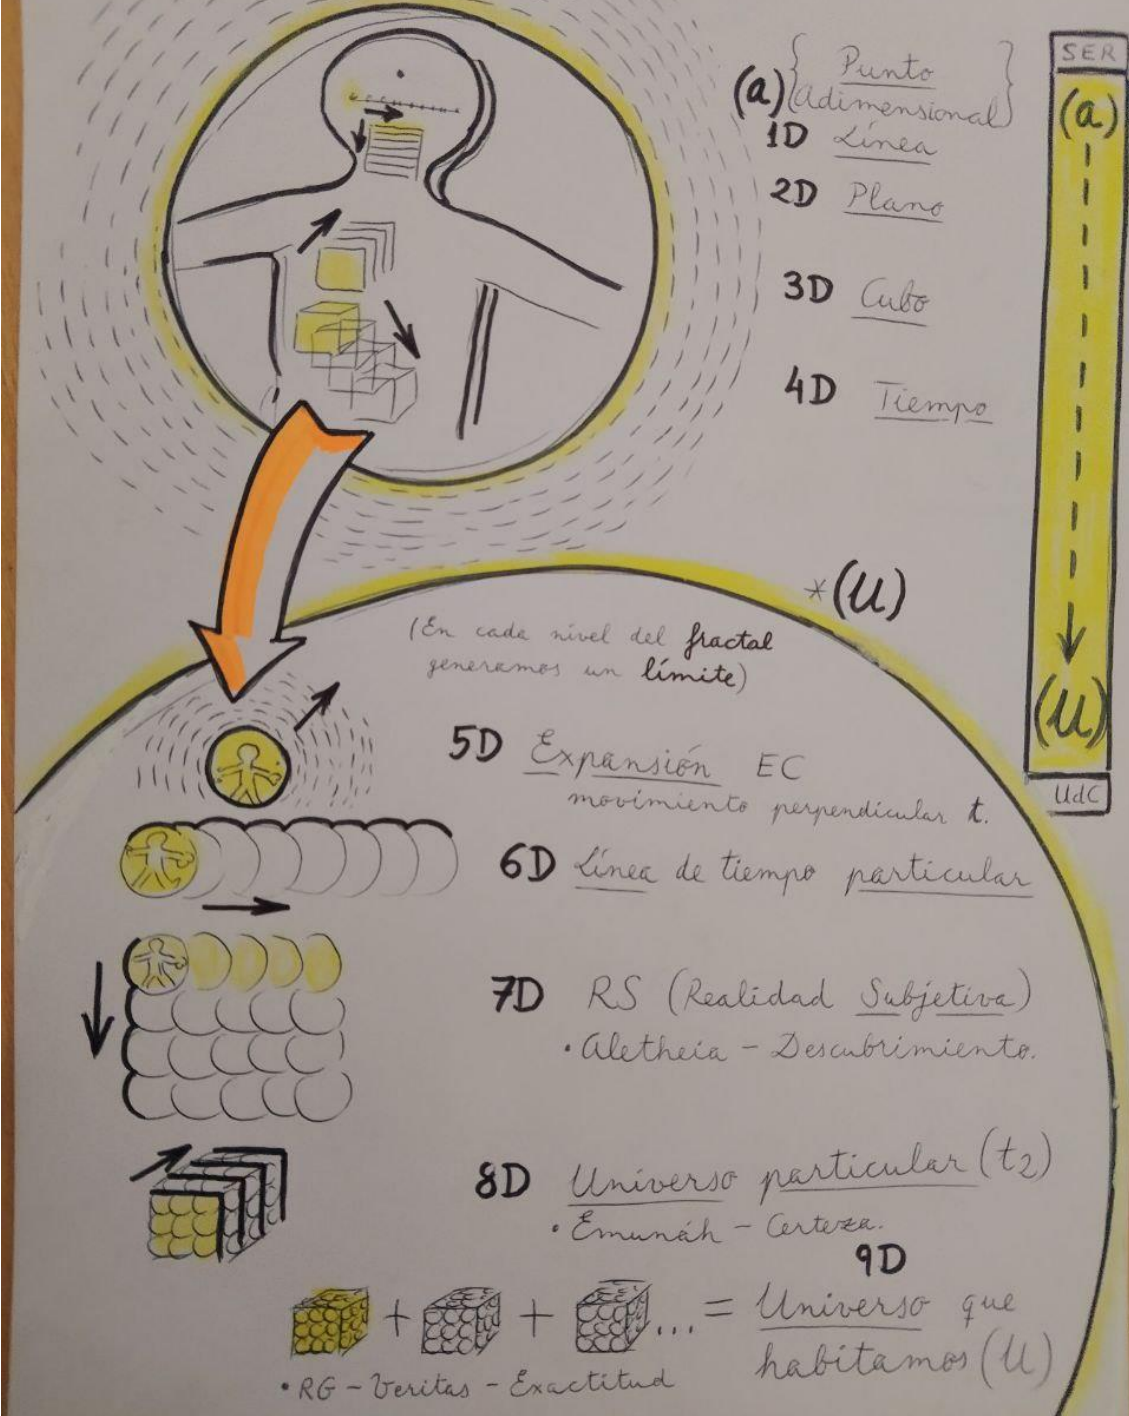 (a) { Punto
adimensional }
1D Línea
2D Plano
3D Cubo
4D Tiempo
SER
(a)
(U)
UdC
*(U)
(En cada nivel del fractal
generamos un límite)
5D Expansión EC
movimiento perpendicular t.
6D Línea de tiempo particular
7D RS (Realidad Subjetiva)
• Aletheia - Descubrimiento.
8D Universo particular (t2)
• Emunáh - Certeza.
9D
+ + ... = Universo que
habitamos (U)
• RG - Veritas - Exactitud